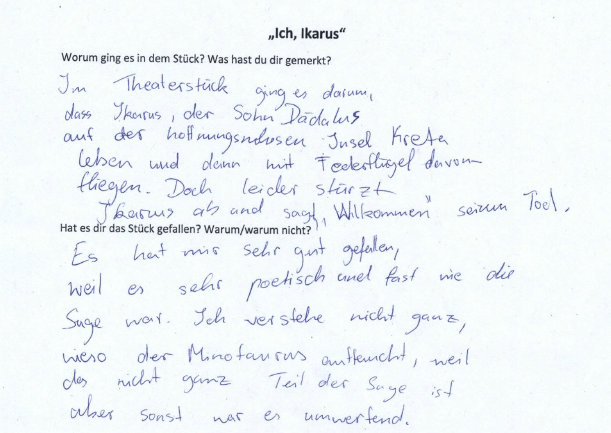 „Ich, Ikarus“
Worum ging es in dem Stück? Was hast du dir gemerkt?
Im Theaterstück ging es darum,
dass Ikarus, der Sohn Dädalus
auf der hoffnungslosen Insel Kreta
leben und dann mit Federflügel davon
fliegen. Doch leider stürzt
Ikarus ab und sagt „Willkommen" seinem Tod.
Hat es dir das Stück gefallen? Warum/warum nicht?
Es hat mir sehr gut gefallen,
weil es sehr poetisch und fast wie die
Sage war. Ich verstehe nicht ganz,
wieso der Minotaurus auftaucht, weil
das nicht ganz Teil der Sage ist
aber sonst war es umwerfend.